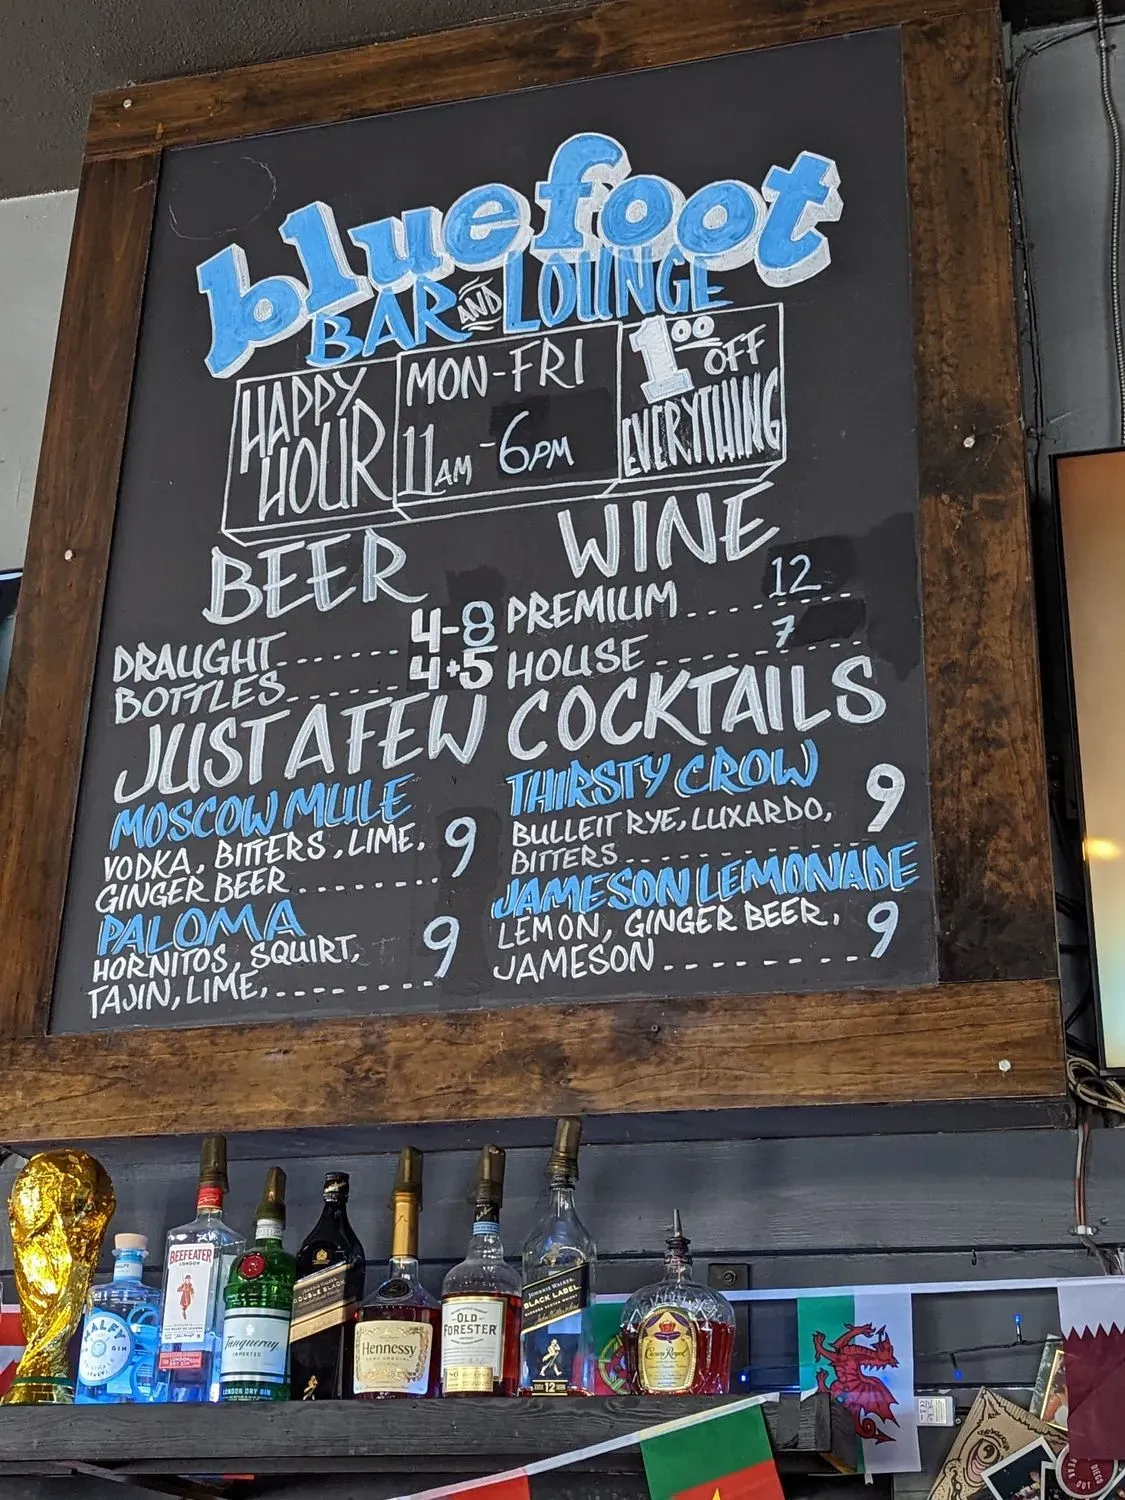 bluefoot
BAR AND LOUNGE
HAPPY
HOUR
MON-FRI
11AM-6PM
1.00 OFF
EVERYTHING
BEER
DRAUGHT 4-8
BOTTLES 4+5
WINE
PREMIUM 12
HOUSE 7
JUST A FEW COCKTAILS
MOSCOW MULE
VODKA, BITTERS, LIME,
GINGER BEER 9
PALOMA
HORNITOS, SQUIRT,
TAJIN, LIME, 9
THIRSTY CROW
BULLEIT RYE, LUXARDO,
BITTERS 9
JAMESON LEMONADE
LEMON, GINGER BEER,
JAMESON 9
MALFY
GIN
BEEFEATER
LONDON
Tanqueray
IMPORTED
LONDON DRY GIN
DOUBLE BLACK
Hennessy
VERY SPECIAL
OLD
FORESTER
86
JOHNNIE WALKER
BLACK LABEL
12
Crown Royal
DIEGO